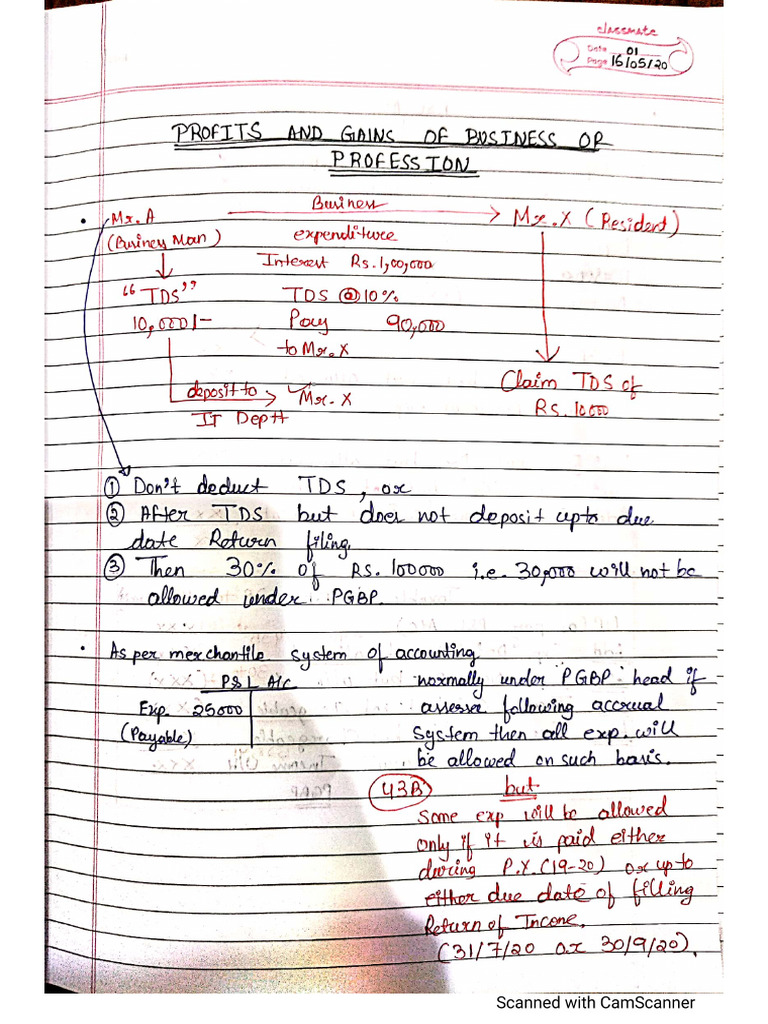 classmate
Date 01
Page 16/05/20
PROFITS AND GAINS OF BUSINESS OR
PROFESSION
• Mr. A Business Mr. X (Resident)
(Business Man) expenditure
Interest Rs. 1,00,000
"TDS" TDS @ 10%
10,000/- Pay 90,000
to Mr. X
Claim TDS of
deposit to Mr. X Rs. 10000
IT Deptt
① Don't deduct TDS, or
② After TDS but does not deposit upto due
date Return filing.
③ Then 30% of Rs. 100000 i.e. 30,000 will not be
allowed under PGBP.
• As per merchantile system of accounting
P&L A/c normally under PGBP head if
Exp. 25000 assesee following accrual
(Payable) system then all exp. will
be allowed on such basis.
43B but
Some exp will be allowed
only if it is paid either
during P.Y. (19-20) or up to
either due date of filling
Return of Income.
(31/7/20 or 30/9/20).
Scanned with CamScanner